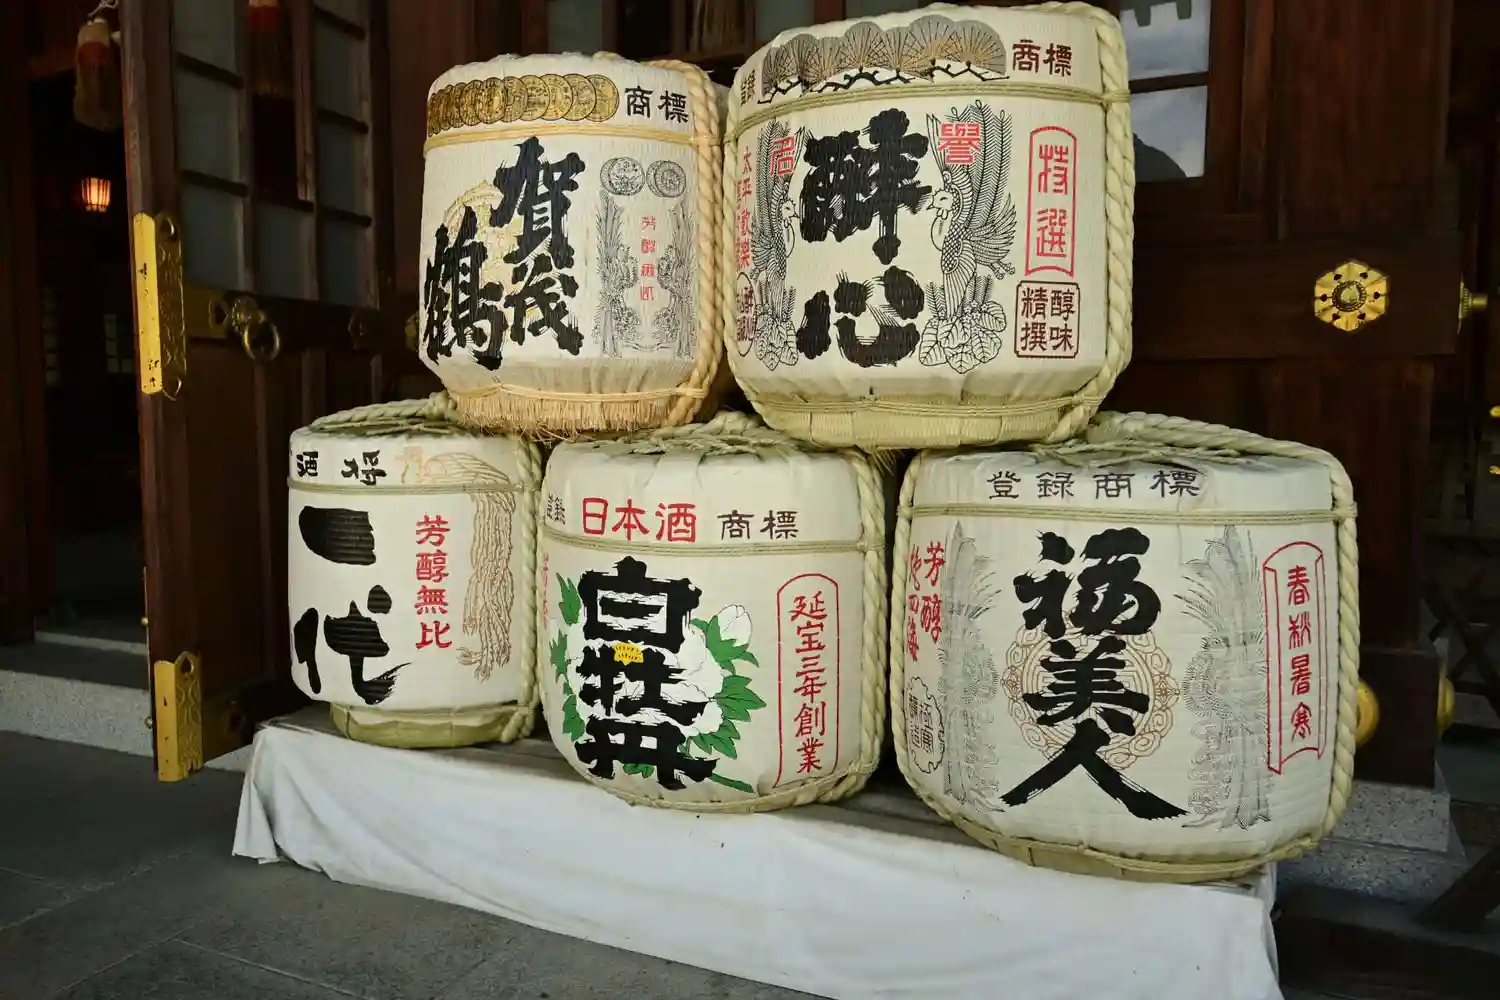 商標
賀茂
鶴
芳醇無比
登録
商標
名
譽
酔心
太平歓樂
特選
醇味
精撰
酒 将
一代
芳醇無比
登録
日本酒
商標
白牡丹
延宝三年創業
登録商標
芳醇
福美人
春秋暑寒